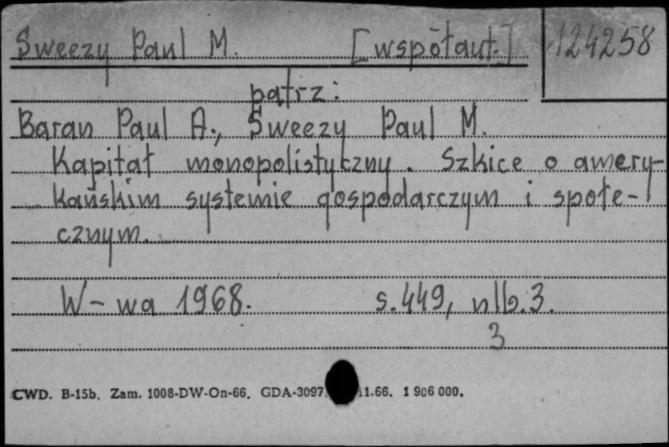 Sweezy Paul M. [współaut.] 124258
patrz:
Baran Paul A., Sweezy Paul M.
Kapitał monopolistyczny. Szkice o amery-
kańskim systemie gospodarczym i społe-
cznym.
W-wa 1968. s.449, nlb.3.
3
CWD. B-15b. Zam. 1008-DW-On-66. GDA-3097 11.66. 1 906 000.